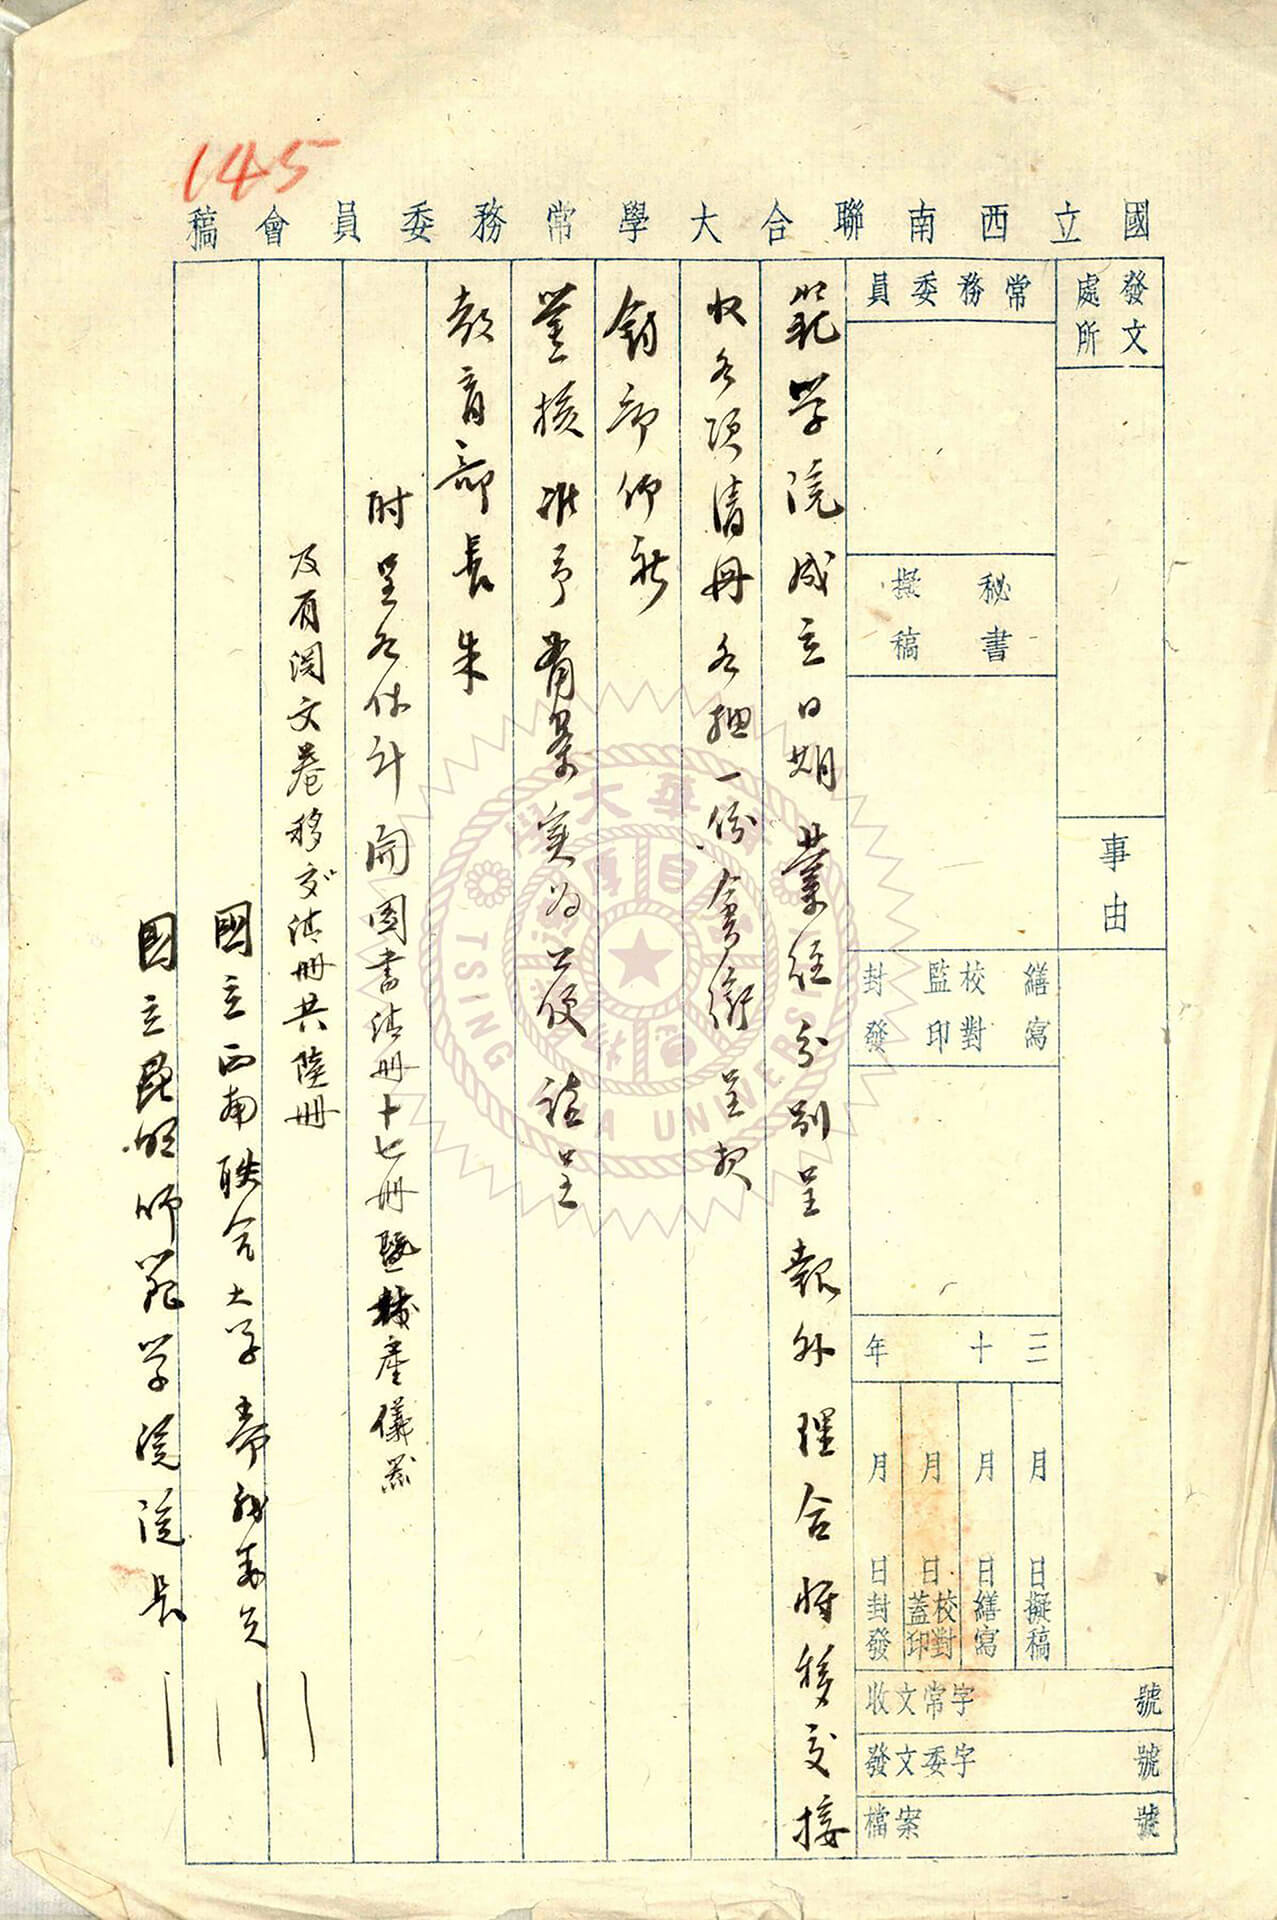 145
國立西南聯合大學常務委員會稿
發文處所
事由
常務委員
秘書擬稿
繕寫
校對
監印
封發
三十 年
月 日擬稿
月 日繕寫
月 日校對蓋印
月 日封發
收文常字 號
發文委字 號
檔案 號
範学院成立日期業經分别呈報外理合將移交接
收各項清册各担一份會銜呈
鈞部仰祈
鉴核准予备案实为公便謹呈
教育部長朱
附呈各件計開圖書清册十七册暨校產儀器
及有関文卷移交清册共陸册
國立西南联合大学常務委員
國立昆明师範学院院長